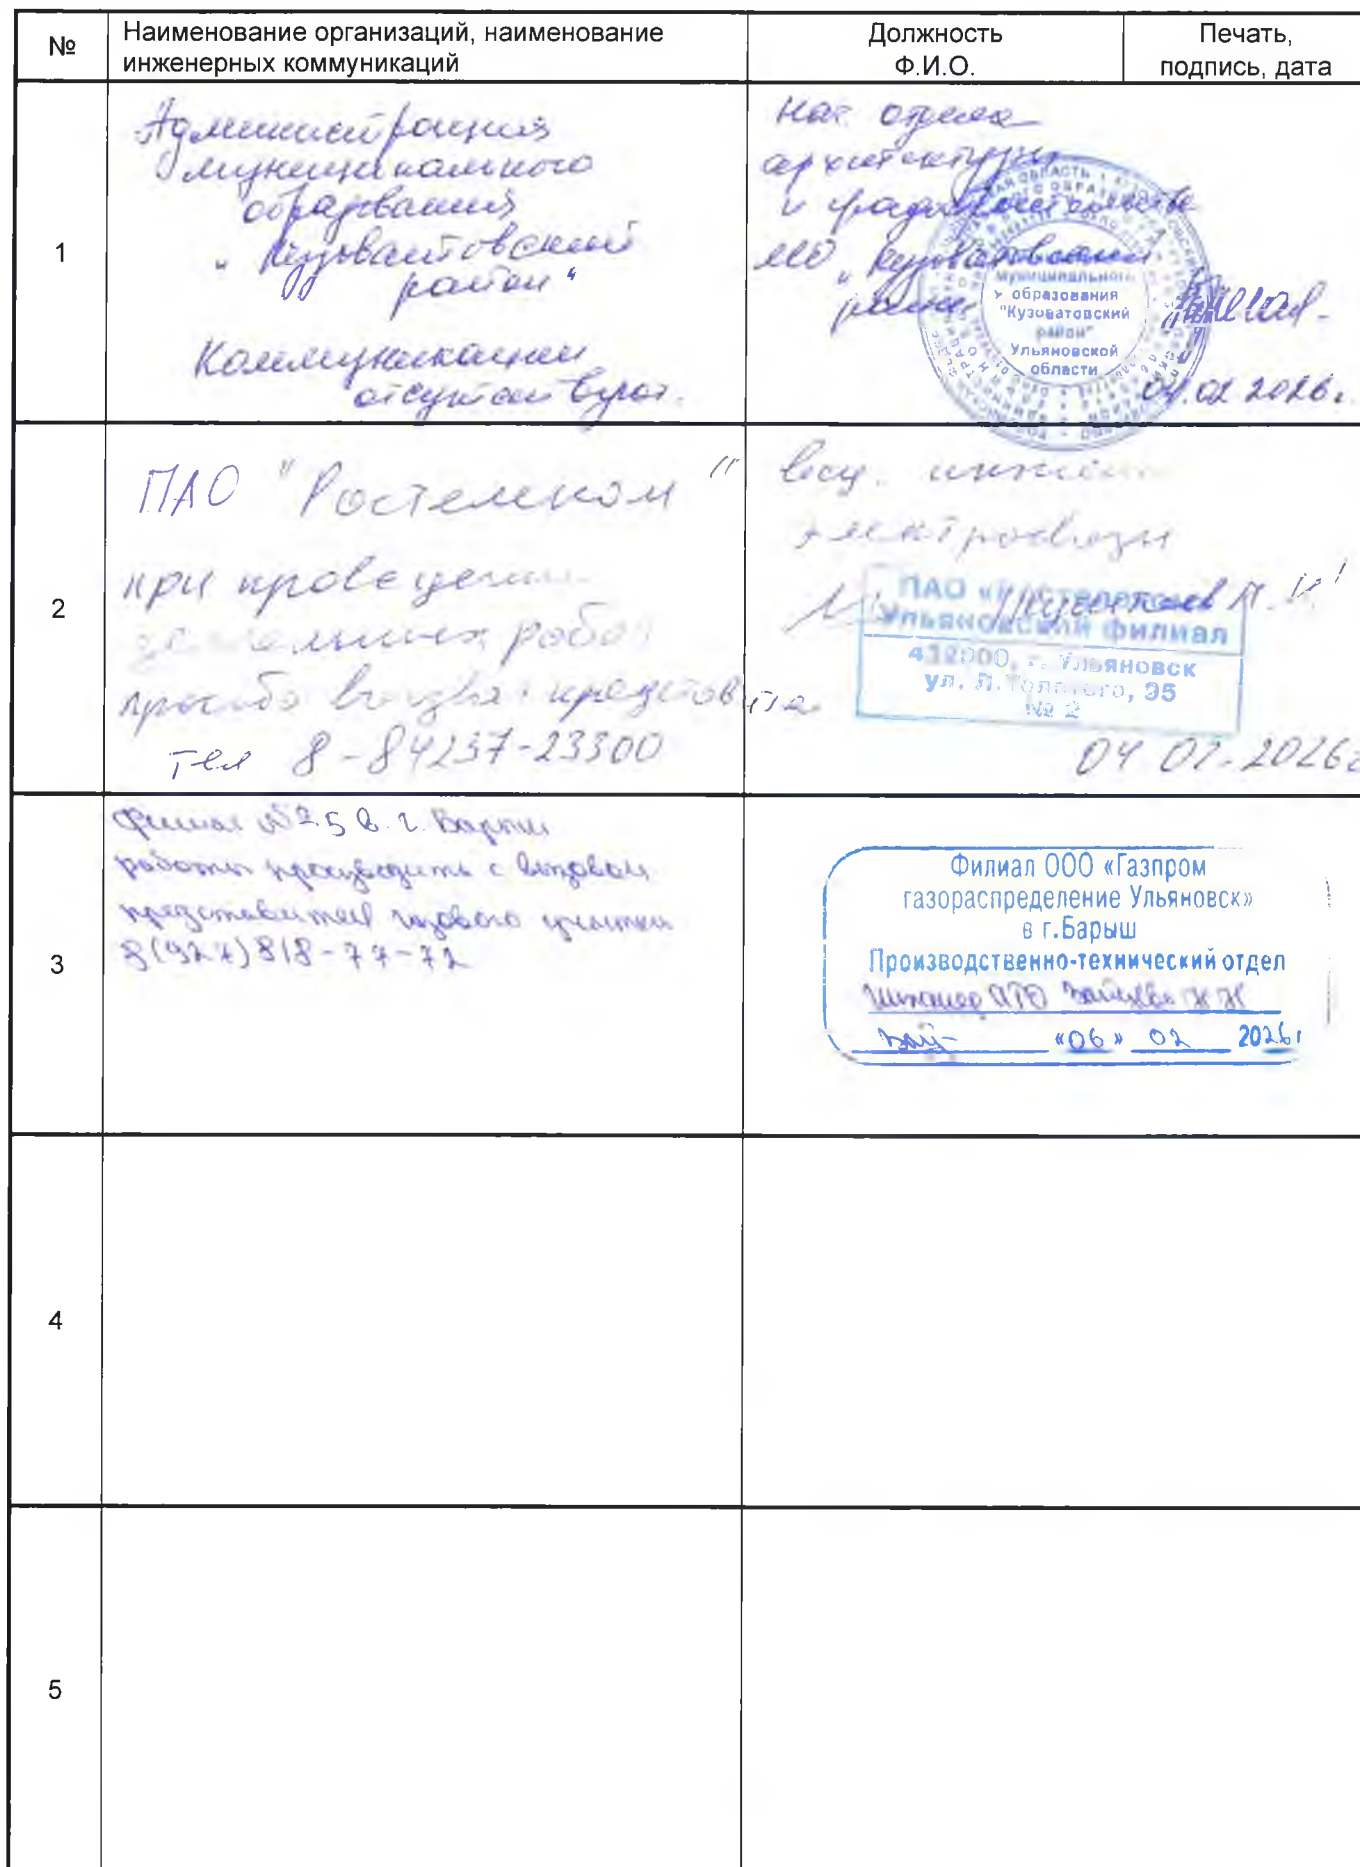 №
Наименование организаций, наименование
инженерных коммуникаций
Должность
Ф.И.О.
Печать,
подпись, дата
1
Администрация
муниципального
образования
"Кузоватовский
район"
Коммуникации
отсутствуют.
Нач отдела
архитектуры
и градостроительства
МО "Кузоватовский
район"
муниципального
образования
"Кузоватовский
район"
Ульяновской
области
04.02 2026г.
2
ПАО "Ростелеком"
при проведении
земельных работ
просьба вызвать представите
тел 8-84237-23300
вед. инженер
электросвязи
ПАО «Ростелеком»
Ульяновский филиал
432000, г. Ульяновск
ул. Л.Толстого, 95
№ 2
04 02-2026г
3
филиал №25 в г. Барыш
работы производить с вызовом
представителя газового участка
8(927)818-77-72
Филиал ООО «Газпром
газораспределение Ульяновск»
в г.Барыш
Производственно-технический отдел
Инженер ПТО Зайцева Н Н
«06» 02 2026г
4
5